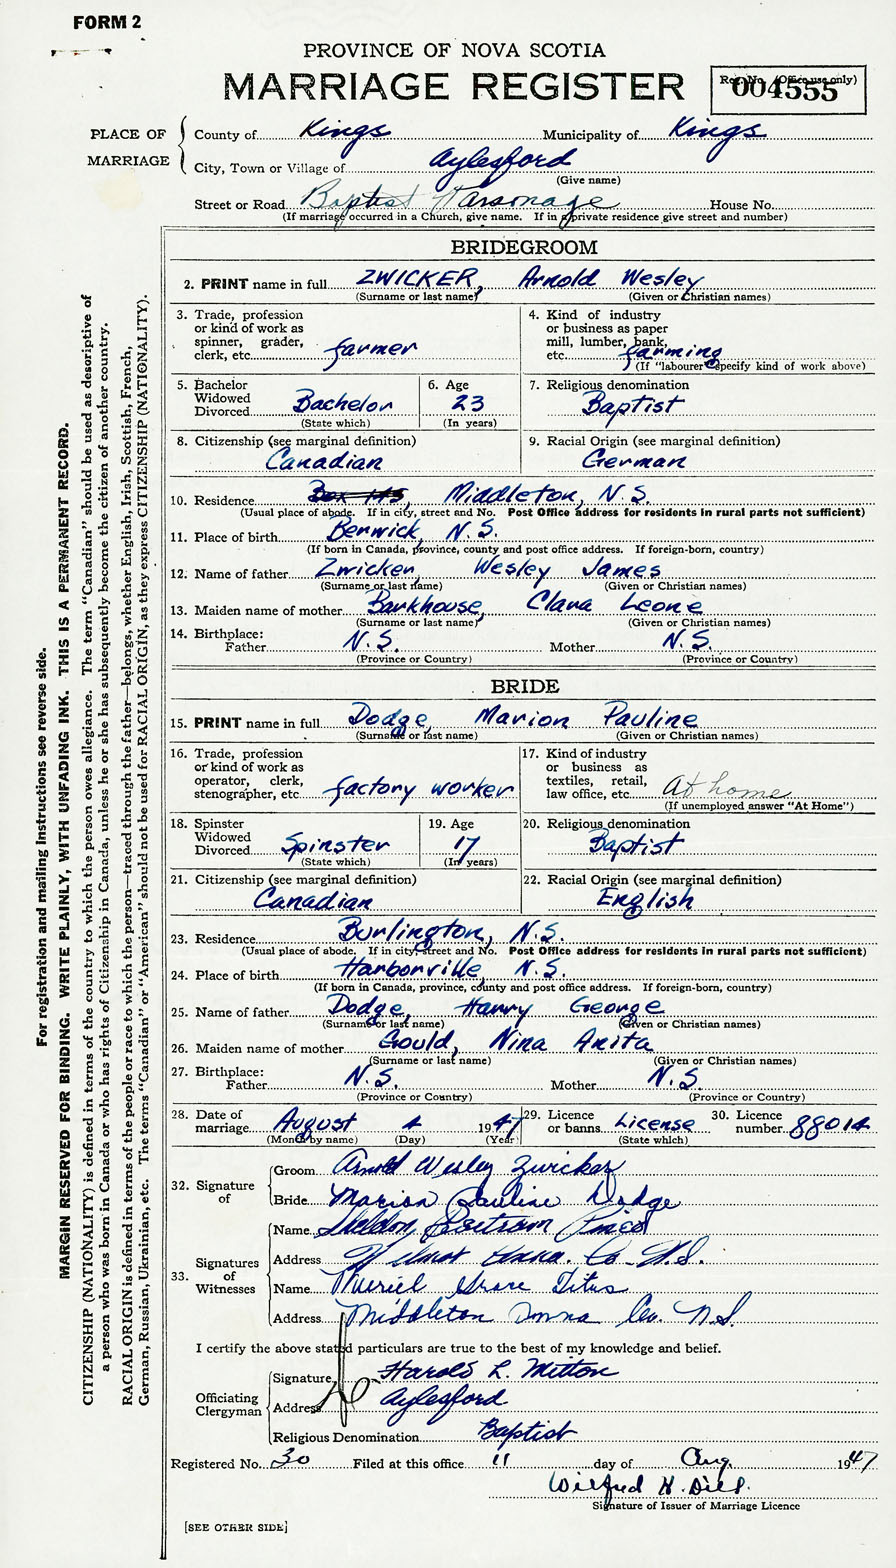 FORM 2
PROVINCE OF NOVA SCOTIA
MARRIAGE REGISTER
Reg. No. (Office use only)
004555
PLACE OF MARRIAGE
County of Kings Municipality of Kings
City, Town or Village of Aylesford
(Give name)
Street or Road Baptist Parsonage House No.
(If marriage occurred in a Church, give name. If in a private residence give street and number)
BRIDEGROOM
2. PRINT name in full ZWICKER, Arnold Wesley
(Surname or last name) (Given or Christian names)
3. Trade, profession or kind of work as spinner, grader, clerk, etc. farmer
4. Kind of industry or business as paper mill, lumber, bank, etc. farming
(If "labourer" specify kind of work above)
5. Bachelor Widowed Divorced Bachelor
(State which)
6. Age 23
(In years)
7. Religious denomination Baptist
8. Citizenship (see marginal definition) Canadian
9. Racial Origin (see marginal definition) German
10. Residence Box 145, Middleton, N.S.
(Usual place of abode. If in city, street and No. Post Office address for residents in rural parts not sufficient)
11. Place of birth Berwick, N.S.
(If born in Canada, province, county and post office address. If foreign-born, country)
12. Name of father Zwicker, Wesley James
(Surname or last name) (Given or Christian names)
13. Maiden name of mother Barkhouse, Clara Leone
(Surname or last name) (Given or Christian names)
14. Birthplace:
Father N.S. Mother N.S.
(Province or Country) (Province or Country)
BRIDE
15. PRINT name in full Dodge, Marion Pauline
(Surname or last name) (Given or Christian names)
16. Trade, profession or kind of work as operator, clerk, stenographer, etc. factory worker
17. Kind of industry or business as textiles, retail, law office, etc. At home
(If unemployed answer "At Home")
18. Spinster Widowed Divorced Spinster
(State which)
19. Age 17
(In years)
20. Religious denomination Baptist
21. Citizenship (see marginal definition) Canadian
22. Racial Origin (see marginal definition) English
23. Residence Burlington, N.S.
(Usual place of abode. If in city, street and No. Post Office address for residents in rural parts not sufficient)
24. Place of birth Harbourville, N.S.
(If born in Canada, province, county and post office address. If foreign-born, country)
25. Name of father Dodge, Harry George
(Surname or last name) (Given or Christian names)
26. Maiden name of mother Gould, Nina Anita
(Surname or last name) (Given or Christian names)
27. Birthplace:
Father N.S. Mother N.S.
(Province or Country) (Province or Country)
28. Date of marriage August 4 1947
(Month by name) (Day) (Year)
29. Licence or banns License
(State which)
30. Licence number 88014
32. Signature of
Groom Arnold Wesley Zwicker
Bride Marion Pauline Dodge
33. Signatures of Witnesses
Name Sheldon
Address Wilmot Anna. Co. N.S.
Name Muriel Grace Titus
Address Middleton Anna Co. N.S.
I certify the above stated particulars are true to the best of my knowledge and belief.
Officiating Clergyman
Signature Harold L. Mitton
Address Aylesford
Religious Denomination Baptist
Registered No. 30 Filed at this office 11 day of Aug. 1947
Wilfred H. Dill.
Signature of Issuer of Marriage Licence
[SEE OTHER SIDE]
For registration and mailing instructions see reverse side.
MARGIN RESERVED FOR BINDING. WRITE PLAINLY, WITH UNFADING INK. THIS IS A PERMANENT RECORD.
CITIZENSHIP (NATIONALITY) is defined in terms of the country to which the person owes allegiance. The term "Canadian" should be used as descriptive of
a person who was born in Canada or who has rights of Citizenship in Canada, unless he or she has subsequently become the citizen of another country.
RACIAL ORIGIN is defined in terms of the people or race to which the person—traced through the father—belongs, whether English, Irish, Scottish, French,
German, Russian, Ukrainian, etc. The terms "Canadian" or "American" should not be used for RACIAL ORIGIN, as they express CITIZENSHIP (NATIONALITY).